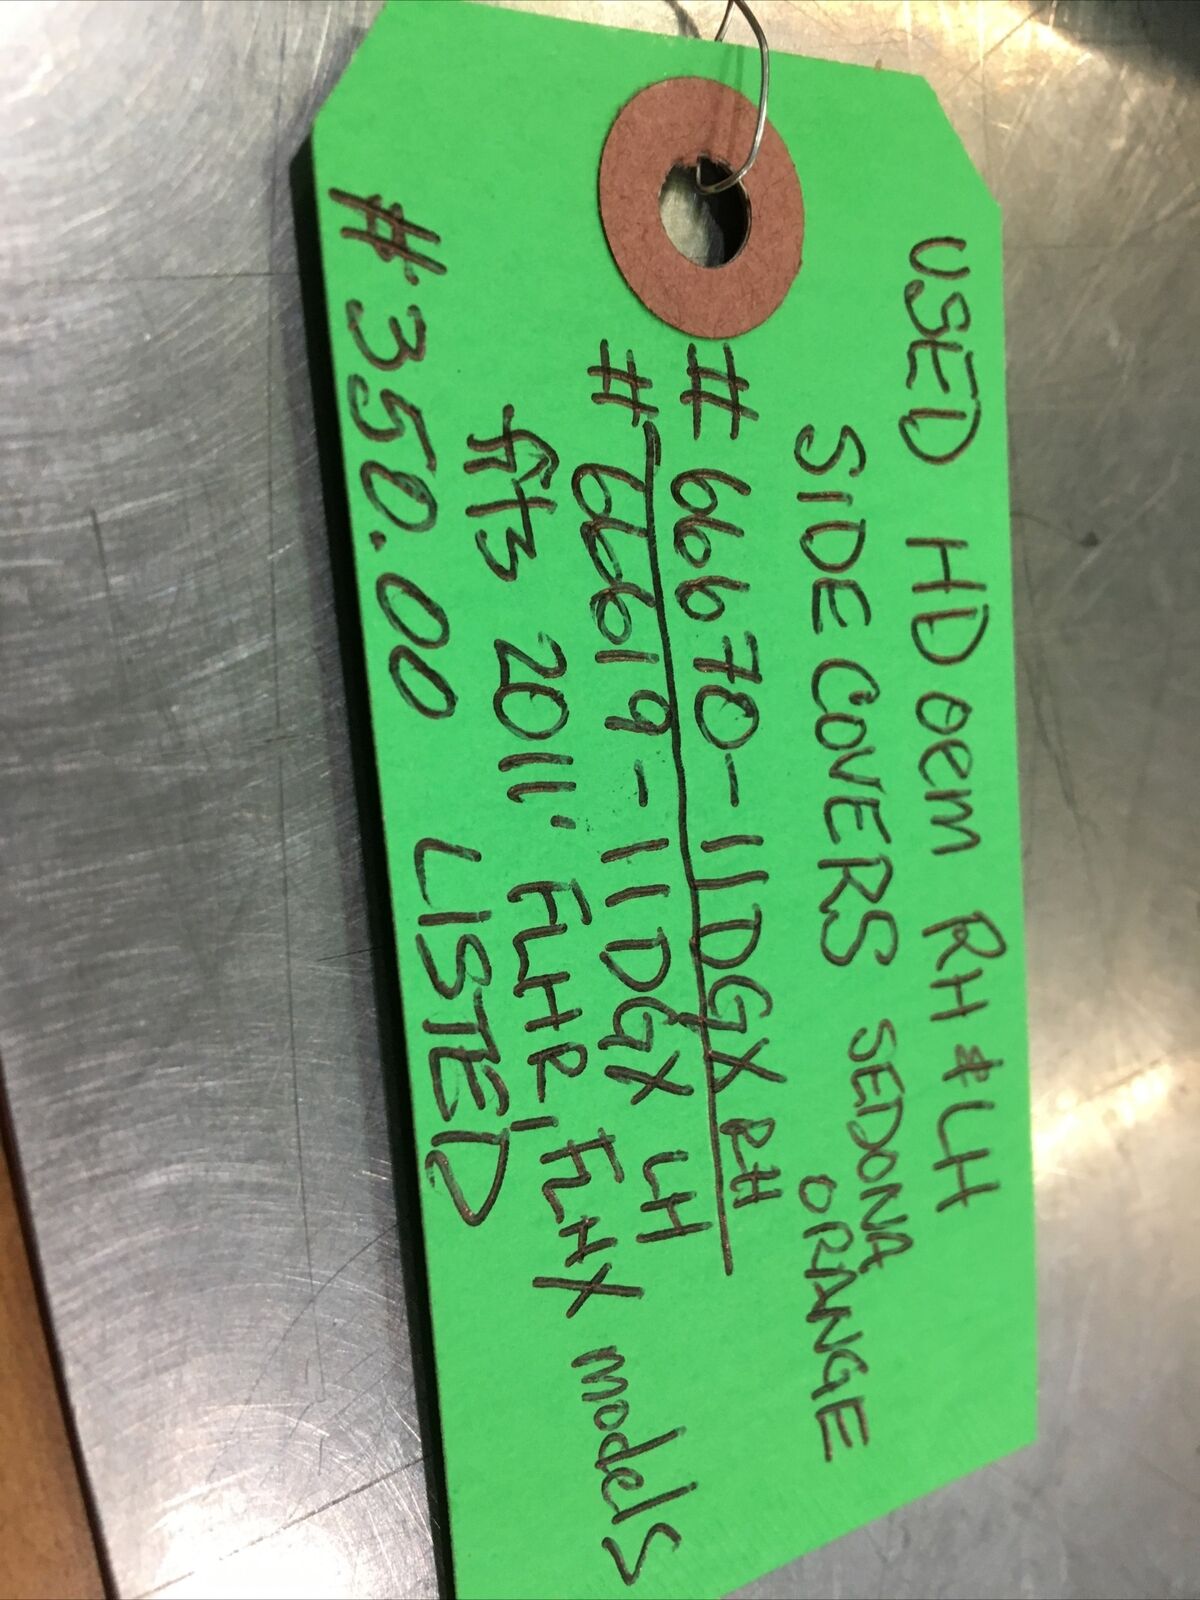 USED HD oem RH & LH
SIDE COVERS SEDONA
ORANGE
# 66670-11DGX RH
# 66619-11DGX LH
fits 2011' FLHR, FLHX models
#350.00 LISTED